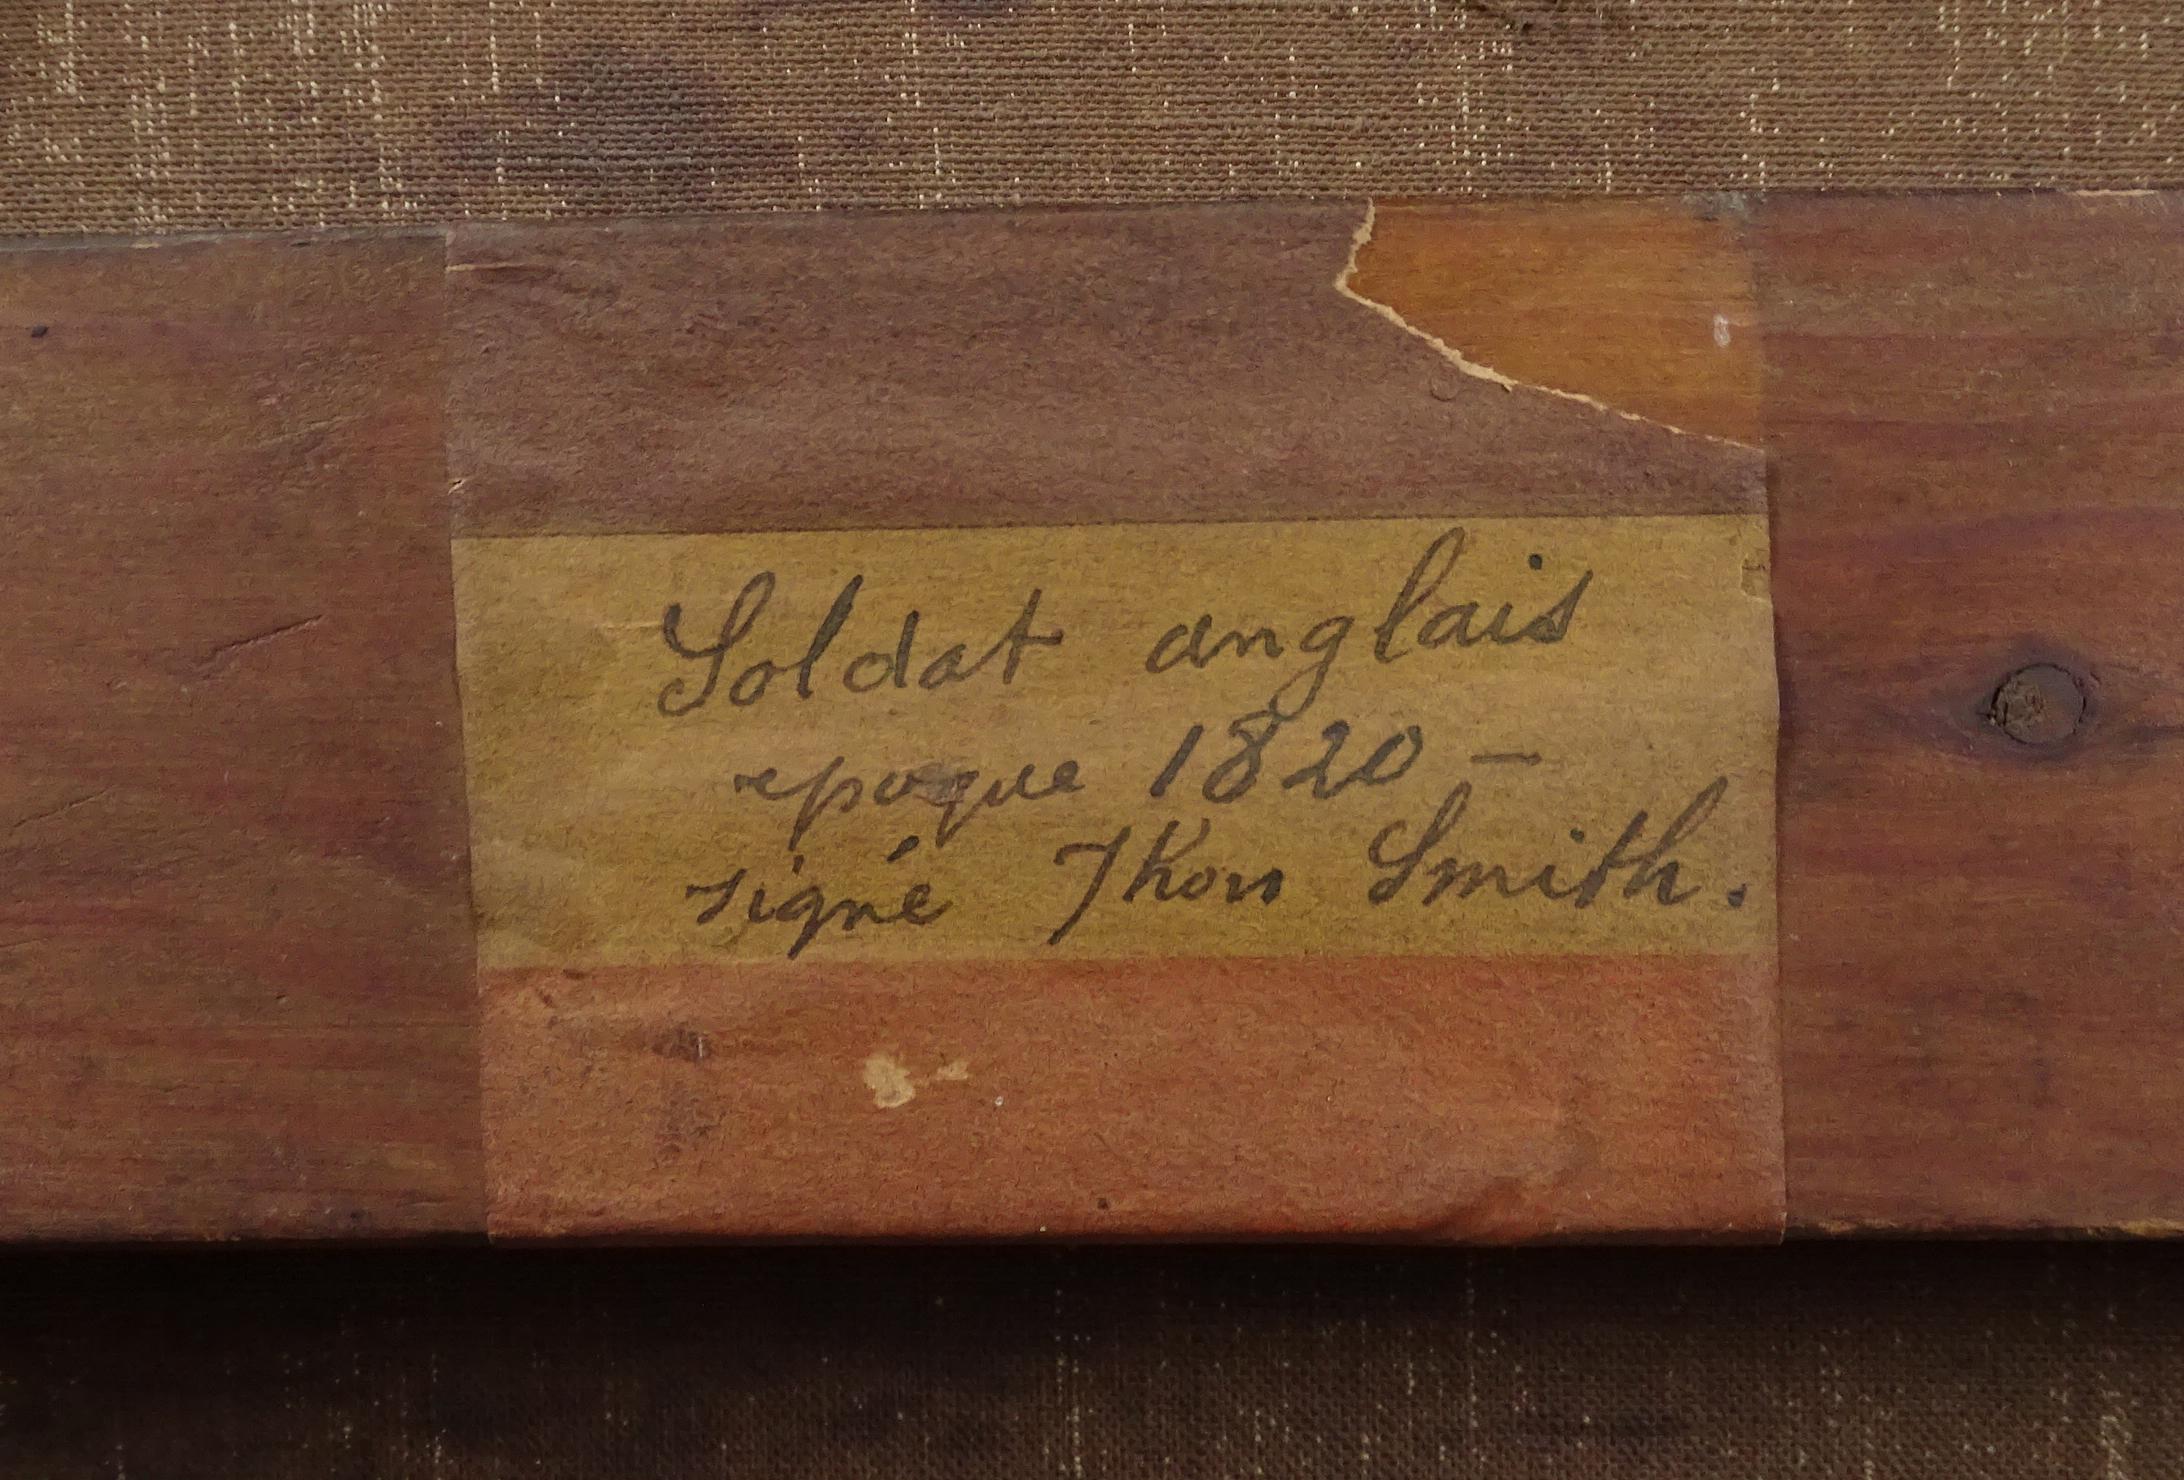 Soldat anglais
epoque 1820 –
signé Jhon Smith.